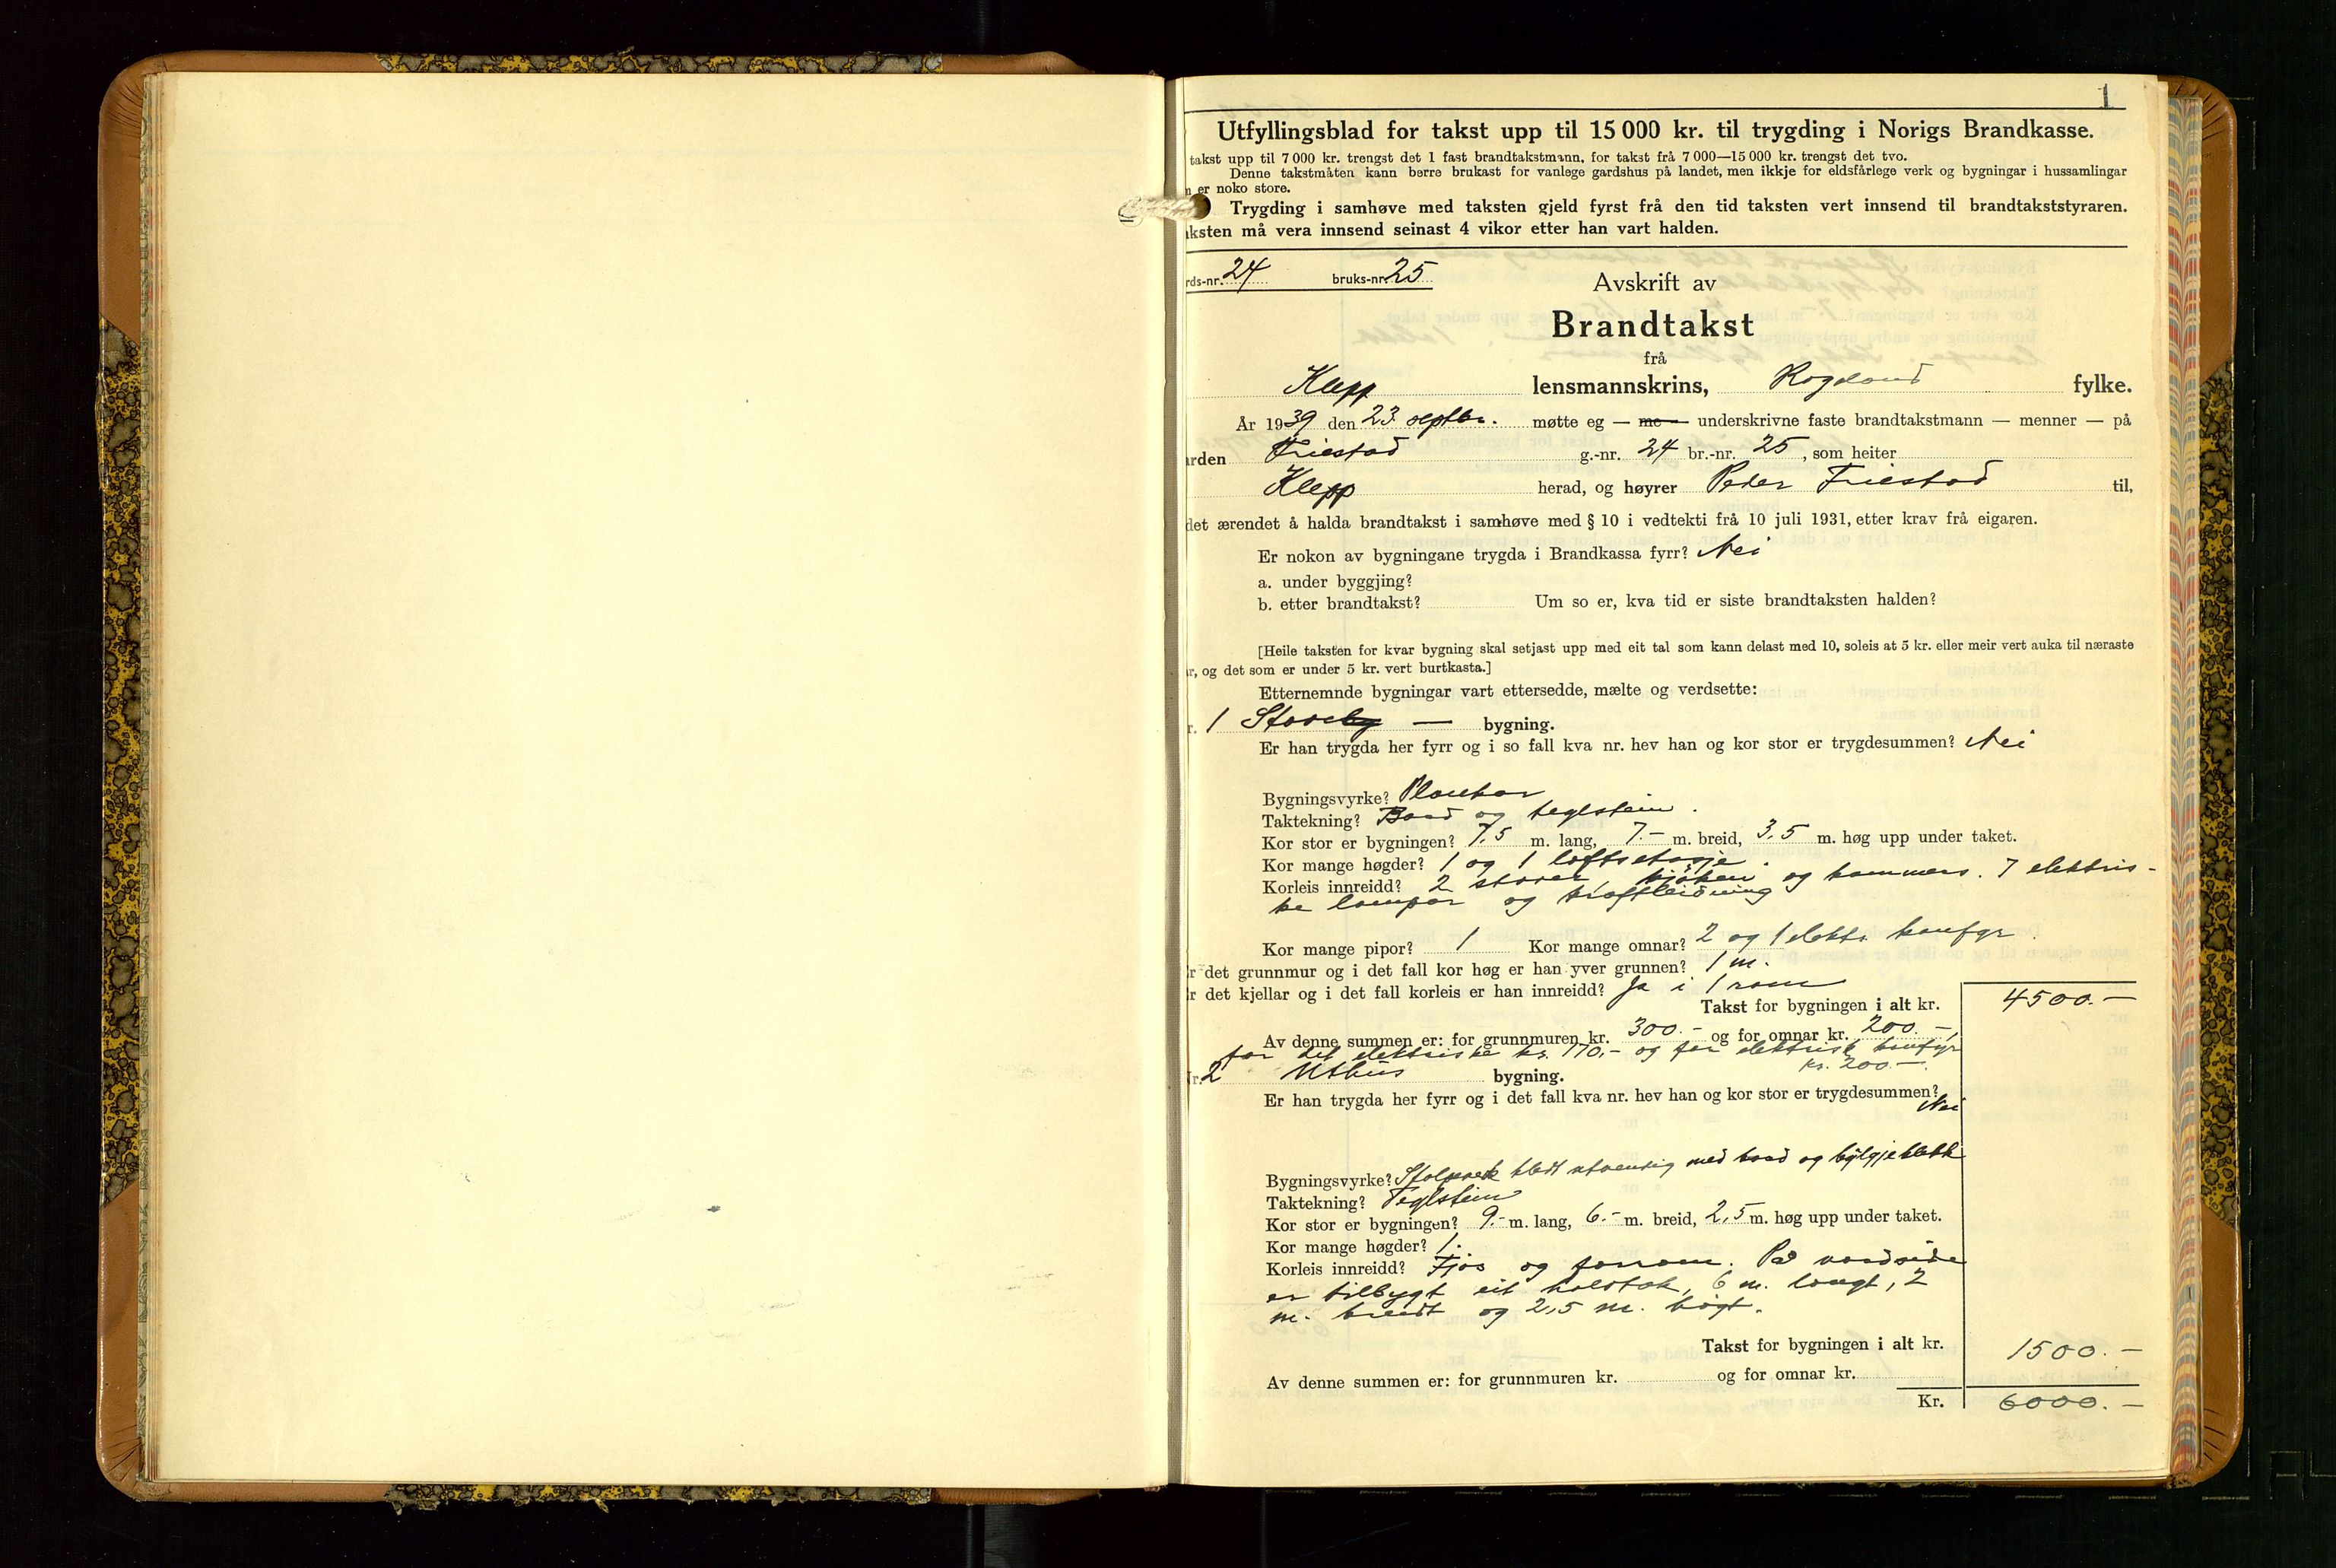 1
Utfyllingsblad for takst upp til 15 000 kr. til trygding i Norigs Brandkasse.
takst upp til 7 000 kr. trengst det 1 fast brandtakstmann, for takst frå 7 000—15 000 kr. trengst det tvo.
Denne takstmåten kann berre brukast for vanlege gardshus på landet, men ikkje for eldsfårlege verk og bygningar i hussamlingar
er noko store.
Trygding i samhøve med taksten gjeld fyrst frå den tid taksten vert innsend til brandtakststyraren.
ksten må vera innsend seinast 4 vikor etter han vart halden.
rds-nr. 24 bruks-nr. 25
Avskrift av
Brandtakst
frå
Klepp lensmannskrins, Rogaland fylke.
År 1939 den 23 septbr. møtte eg — me — underskrivne faste brandtakstmann — menner — på
rden Friestad g.-nr. 24 br.-nr. 25, som heiter
Klepp herad, og høyrer Peder Friestad til,
det ærendet å halda brandtakst i samhøve med § 10 i vedtekti frå 10 juli 1931, etter krav frå eigaren.
Er nokon av bygningane trygda i Brandkassa fyrr? Nei
a. under byggjing?
b. etter brandtakst? Um so er, kva tid er siste brandtaksten halden?
[Heile taksten for kvar bygning skal setjast upp med eit tal som kann delast med 10, soleis at 5 kr. eller meir vert auka til næraste
r, og det som er under 5 kr. vert burtkasta.]
Etternemnde bygningar vart ettersedde, mælte og verdsette:
r. 1 Stoveby — bygning.
Er han trygda her fyrr og i so fall kva nr. hev han og kor stor er trygdesummen? Nei
Bygningsvyrke? Plankar
Taktekning? Bord og teglstein.
Kor stor er bygningen? 7,5 m. lang, 7.- m. breid, 3,5 m. høg upp under taket.
Kor mange høgder? 1 og 1 loftsetasje.
Korleis innreidd? 2 stover, kjøken og kammers. 7 elektris-
ke lampor og kraftleidning
Kor mange pipor? 1 Kor mange omnar? 2 og 1 elektr. komfyr.
r det grunnmur og i det fall kor høg er han yver grunnen? 1 m.
r det kjellar og i det fall korleis er han innreidd? Ja i 1 rom
Takst for bygningen i alt kr. 4500.—
Av denne summen er: for grunnmuren kr. 300.- og for omnar kr. 200.—,
for det elektriske kr. 170.- og for elektrisk komfyr
kr. 200.—.
Nr. 2 Uthus bygning.
Er han trygda her fyrr og i det fall kva nr. hev han og kor stor er trygdesummen?
Nei
Bygningsvyrke? Stolpverk kledt utvendig med bord og bylgjeblekk
Taktekning? Teglstein
Kor stor er bygningen? 9.- m. lang, 6.- m. breid, 2,5 m. høg upp under taket.
Kor mange høgder? 1.
Korleis innreidd? Fjos og forrom. På nordside
er tilbygt eit halvtak, 6 m. langt, 2
m. breidt og 2,5 m. høgt.
Takst for bygningen i alt kr. 1500.—
Av denne summen er: for grunnmuren kr. og for omnar kr.
Kr. 6000.—